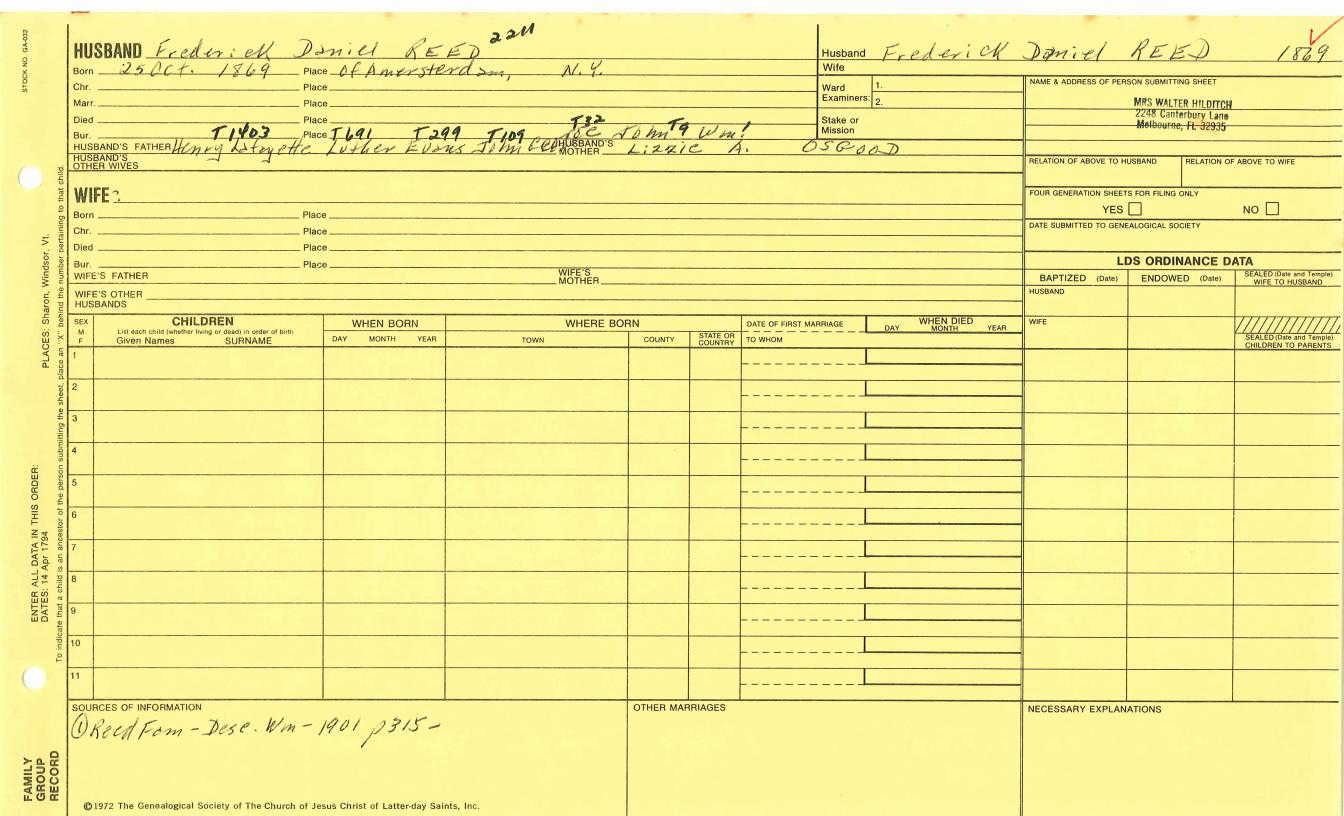 STOCK NO. GA-032
2211
HUSBAND Frederick Daniel REED
Born 25 Oct. 1869 Place Of Amersterdam, N.Y.
Chr. Place
Marr. Place
Died Place
Bur. T1403 Place T691 T299 T109 T32 T9
Joe John Wm!
HUSBAND'S FATHER Henry Lafayette Luther Evans John HUSBAND'S MOTHER Lizzie A. OSGOOD
HUSBAND'S OTHER WIVES
WIFE ?
Born Place
Chr. Place
Died Place
Bur. Place
WIFE'S FATHER WIFE'S MOTHER
WIFE'S OTHER HUSBANDS
Husband Frederick Daniel REED 1869
Wife
Ward Examiners: 1.
2.
Stake or Mission
NAME & ADDRESS OF PERSON SUBMITTING SHEET
MRS WALTER HILDITCH
2248 Canterbury Lane
Melbourne, FL 32935
RELATION OF ABOVE TO HUSBAND RELATION OF ABOVE TO WIFE
FOUR GENERATION SHEETS FOR FILING ONLY
YES NO
DATE SUBMITTED TO GENEALOGICAL SOCIETY
LDS ORDINANCE DATA
BAPTIZED (Date) ENDOWED (Date) SEALED (Date and Temple) WIFE TO HUSBAND
HUSBAND
WIFE
SEALED (Date and Temple) CHILDREN TO PARENTS
SEX M F
CHILDREN
List each child (whether living or dead) in order of birth
Given Names SURNAME
WHEN BORN
DAY MONTH YEAR
WHERE BORN
TOWN COUNTY STATE OR COUNTRY
DATE OF FIRST MARRIAGE
TO WHOM
WHEN DIED
DAY MONTH YEAR
1
2
3
4
5
6
7
8
9
10
11
SOURCES OF INFORMATION
① Reed Fam - Desc. Wm - 1901 p315 -
OTHER MARRIAGES
NECESSARY EXPLANATIONS
©1972 The Genealogical Society of The Church of Jesus Christ of Latter-day Saints, Inc.
PLACES: Sharon, Windsor, Vt.
ENTER ALL DATA IN THIS ORDER:
DATES: 14 Apr 1794
To indicate that a child is an ancestor of the person submitting the sheet, place an "X" behind the number pertaining to that child.
FAMILY GROUP RECORD